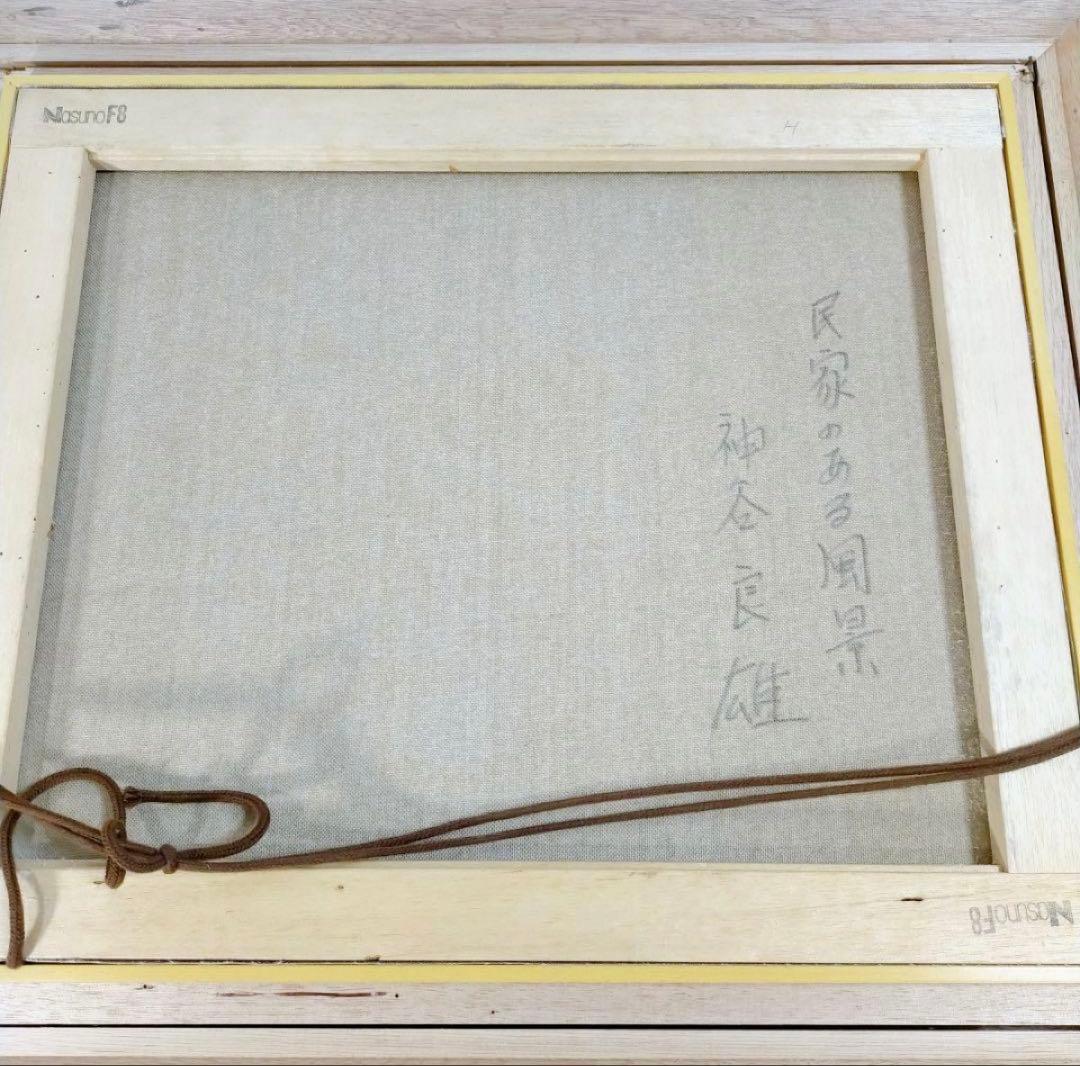 NasunoF8
H
民家のある風景
神谷良雄
NasunoF8